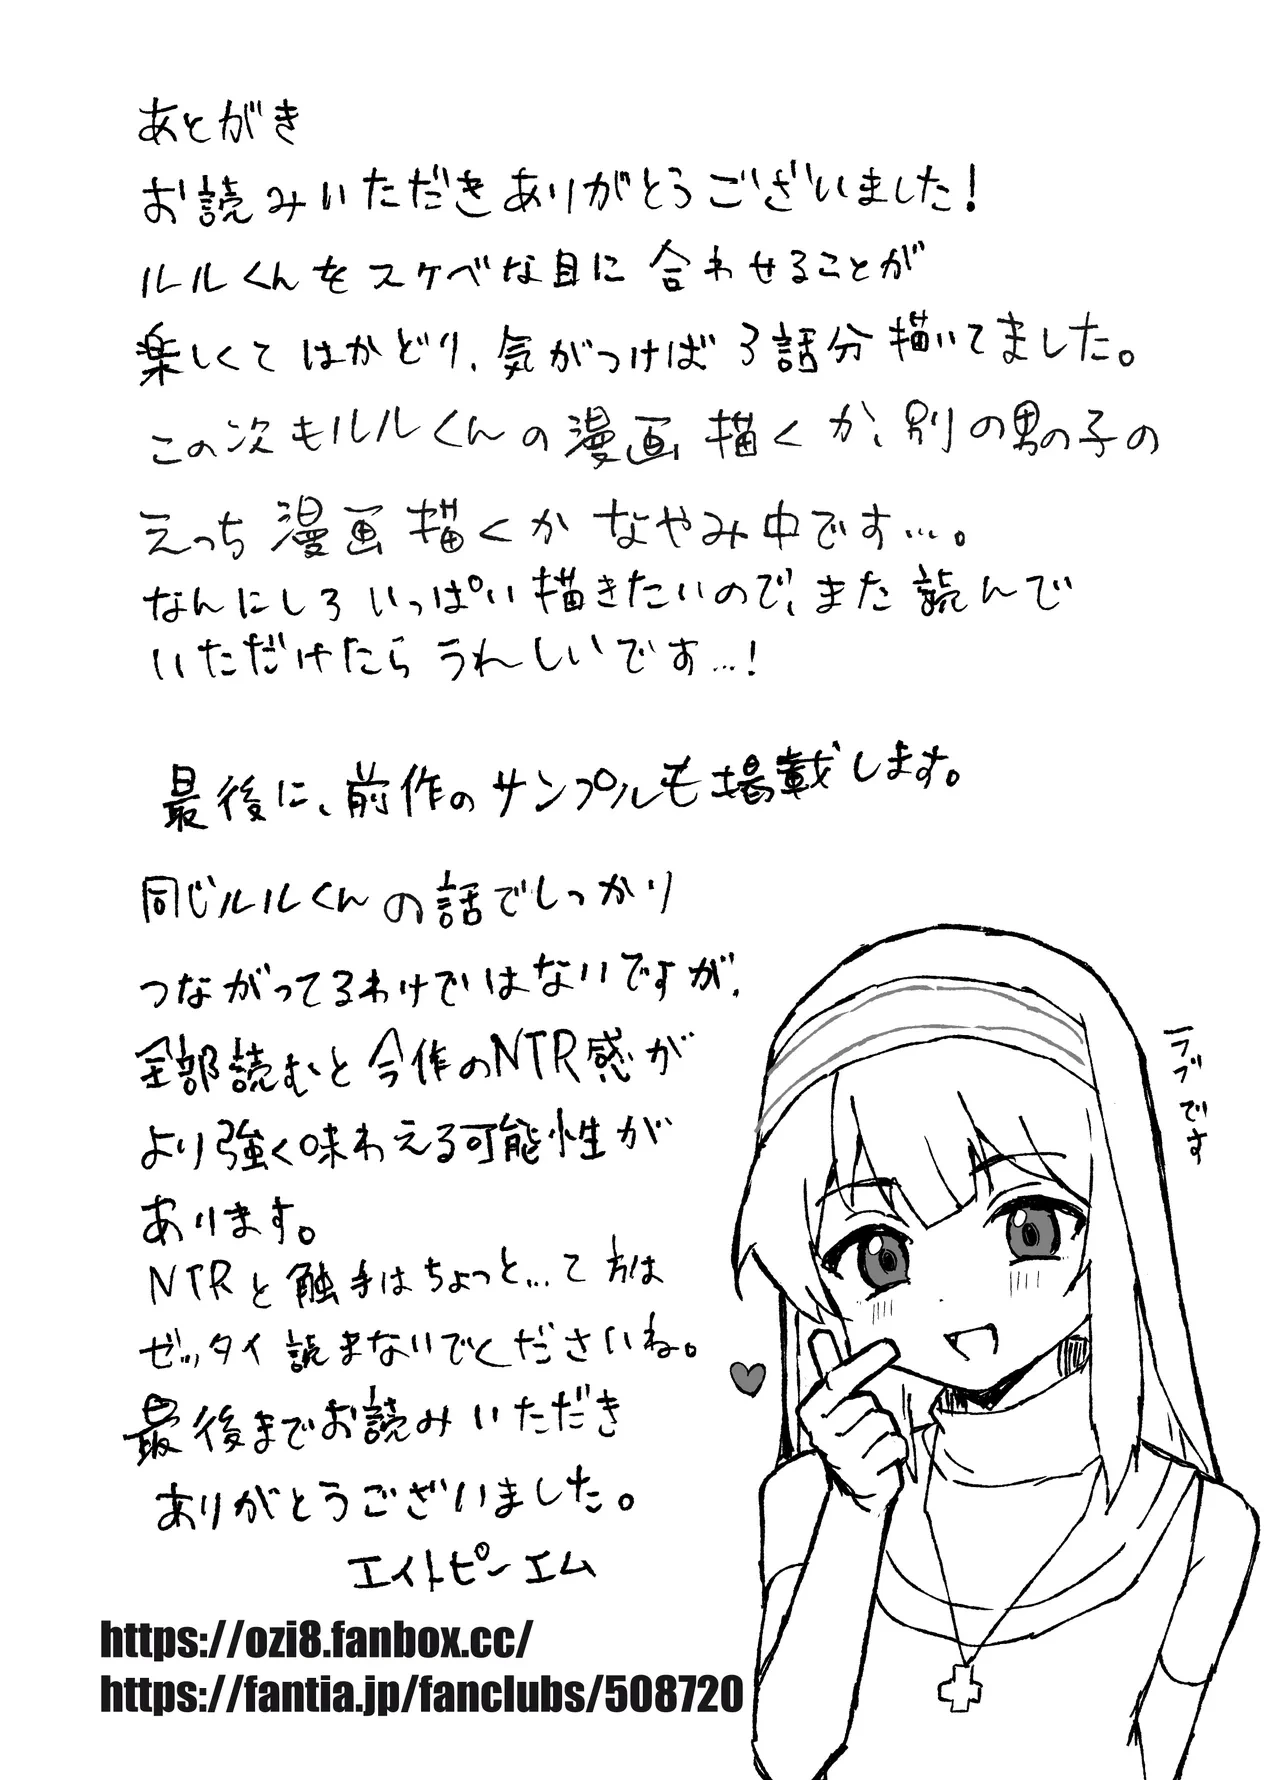 あとがき
お読みいただきありがとうございました!
ルルくんをスケベな目に合わせることが
楽しくてはかどり、気がつけば3話分描いてました。
この次もルルくんの漫画描くか、別の男の子の
えっち漫画描くかなやみ中です…。
なんにしろいっぱい描きたいので、また読んで
いただけたらうれしいです…!
最後に、前作のサンプルも掲載します。
同じルルくんの話でしっかり
つながってるわけではないですが、
全部読むと今作のNTR感が
より強く味わえる可能性が
あります。
NTRと触手はちょっと…て方は
ゼッタイ読まないでくださいね。
最後までお読みいただき
ありがとうございました。
エイトピーエム
https://ozi8.fanbox.cc/
https://fantia.jp/fanclubs/508720
ラブです